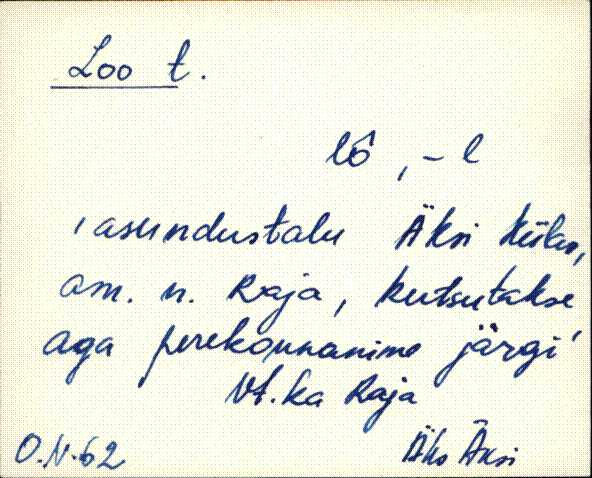 Loo t.
lô, -l
'asundustalu Äksi külas,
am. n. Raja, kutsutakse
aga perekonnanime järgi'
Vt. ka Raja
O.N. 62 Äks Äksi